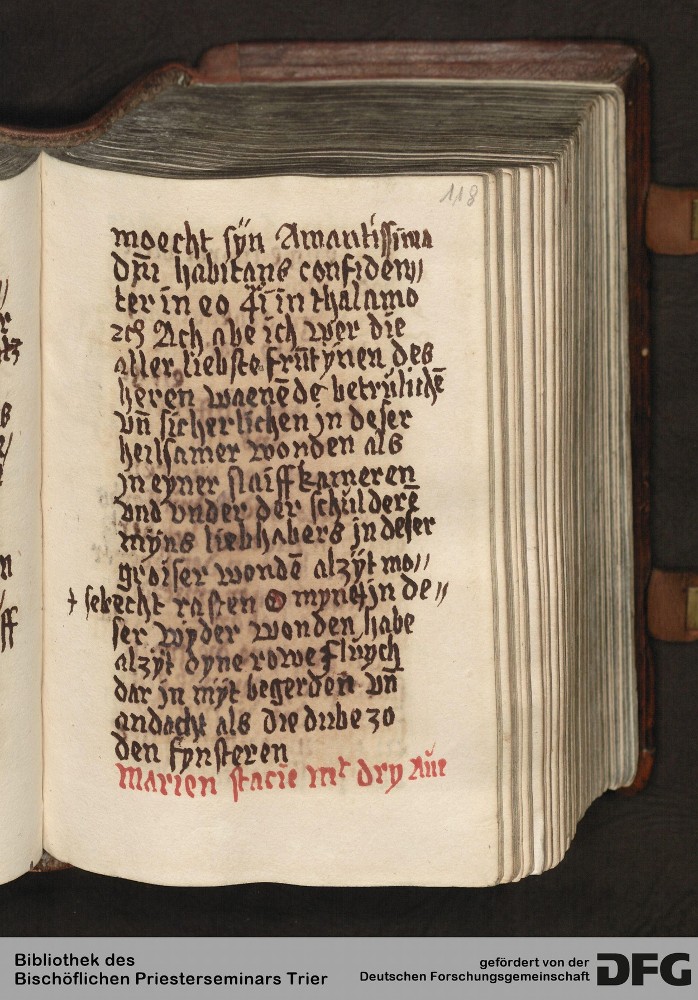 118
moecht sÿn Amantissima
dn̄i habitans confiden〃
ter in eo q̄i in thalamo
ꝛcʒ Ach abe ich wer die
aller liebste frūtÿnen des
heren waenēde betrulichē
vn̄ sicherlichen jn deser
heilsamer wonden als
jn eyner slaiff kameren
vnd vnder der schulderē
mÿns liebhabers jn deser
groiser wondē alzÿt mo〃
† sele cht rasten O myne jn de〃
ser wÿder wonden habe
alzÿt dyne rowe fluych
dar jn mÿt begerden vn̄
andacht als die dube zo
den fynsteren
Marien stacie mt dry Aue
Bibliothek des
Bischöflichen Priesterseminars Trier
gefördert von der
Deutschen Forschungsgemeinschaft
DFG